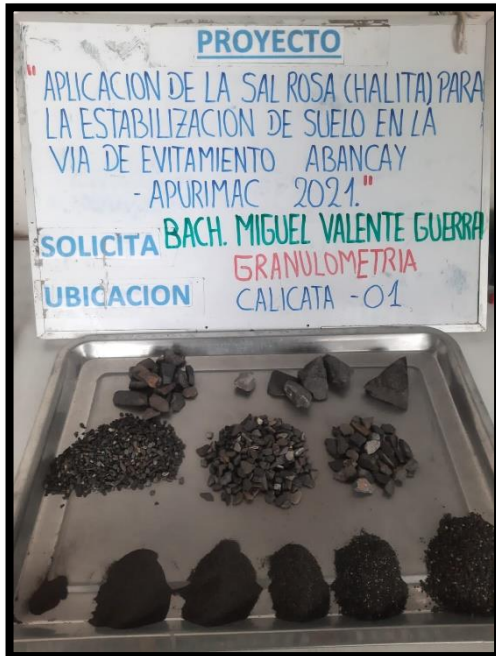 PROYECTO
"APLICACION DE LA SAL ROSA (HALITA) PARA
LA ESTABILIZACION DE SUELO EN LA
VIA DE EVITAMIENTO ABANCAY
- APURIMAC 2021."
SOLICITA BACH. MIGUEL VALENTE GUERRA
GRANULOMETRIA
UBICACION CALICATA - 01